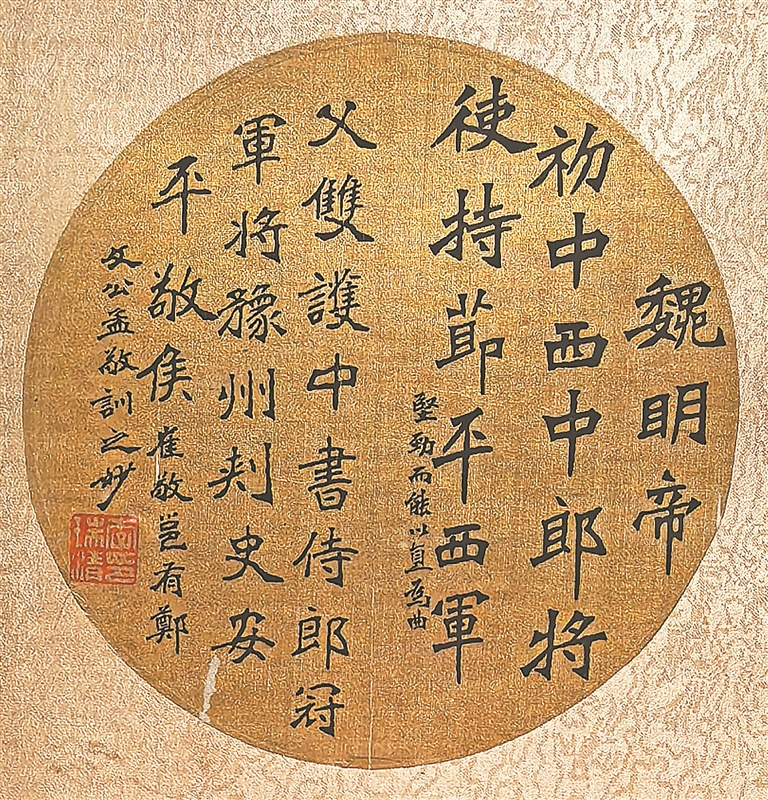 魏明帝
初中西中郎将
使持莭平西軍
堅勁而能以直爲曲
父雙護中書侍郎冠
軍将豫州刾史安
平敬侯
崔敬邕有鄭
文公孟敬訓之妙